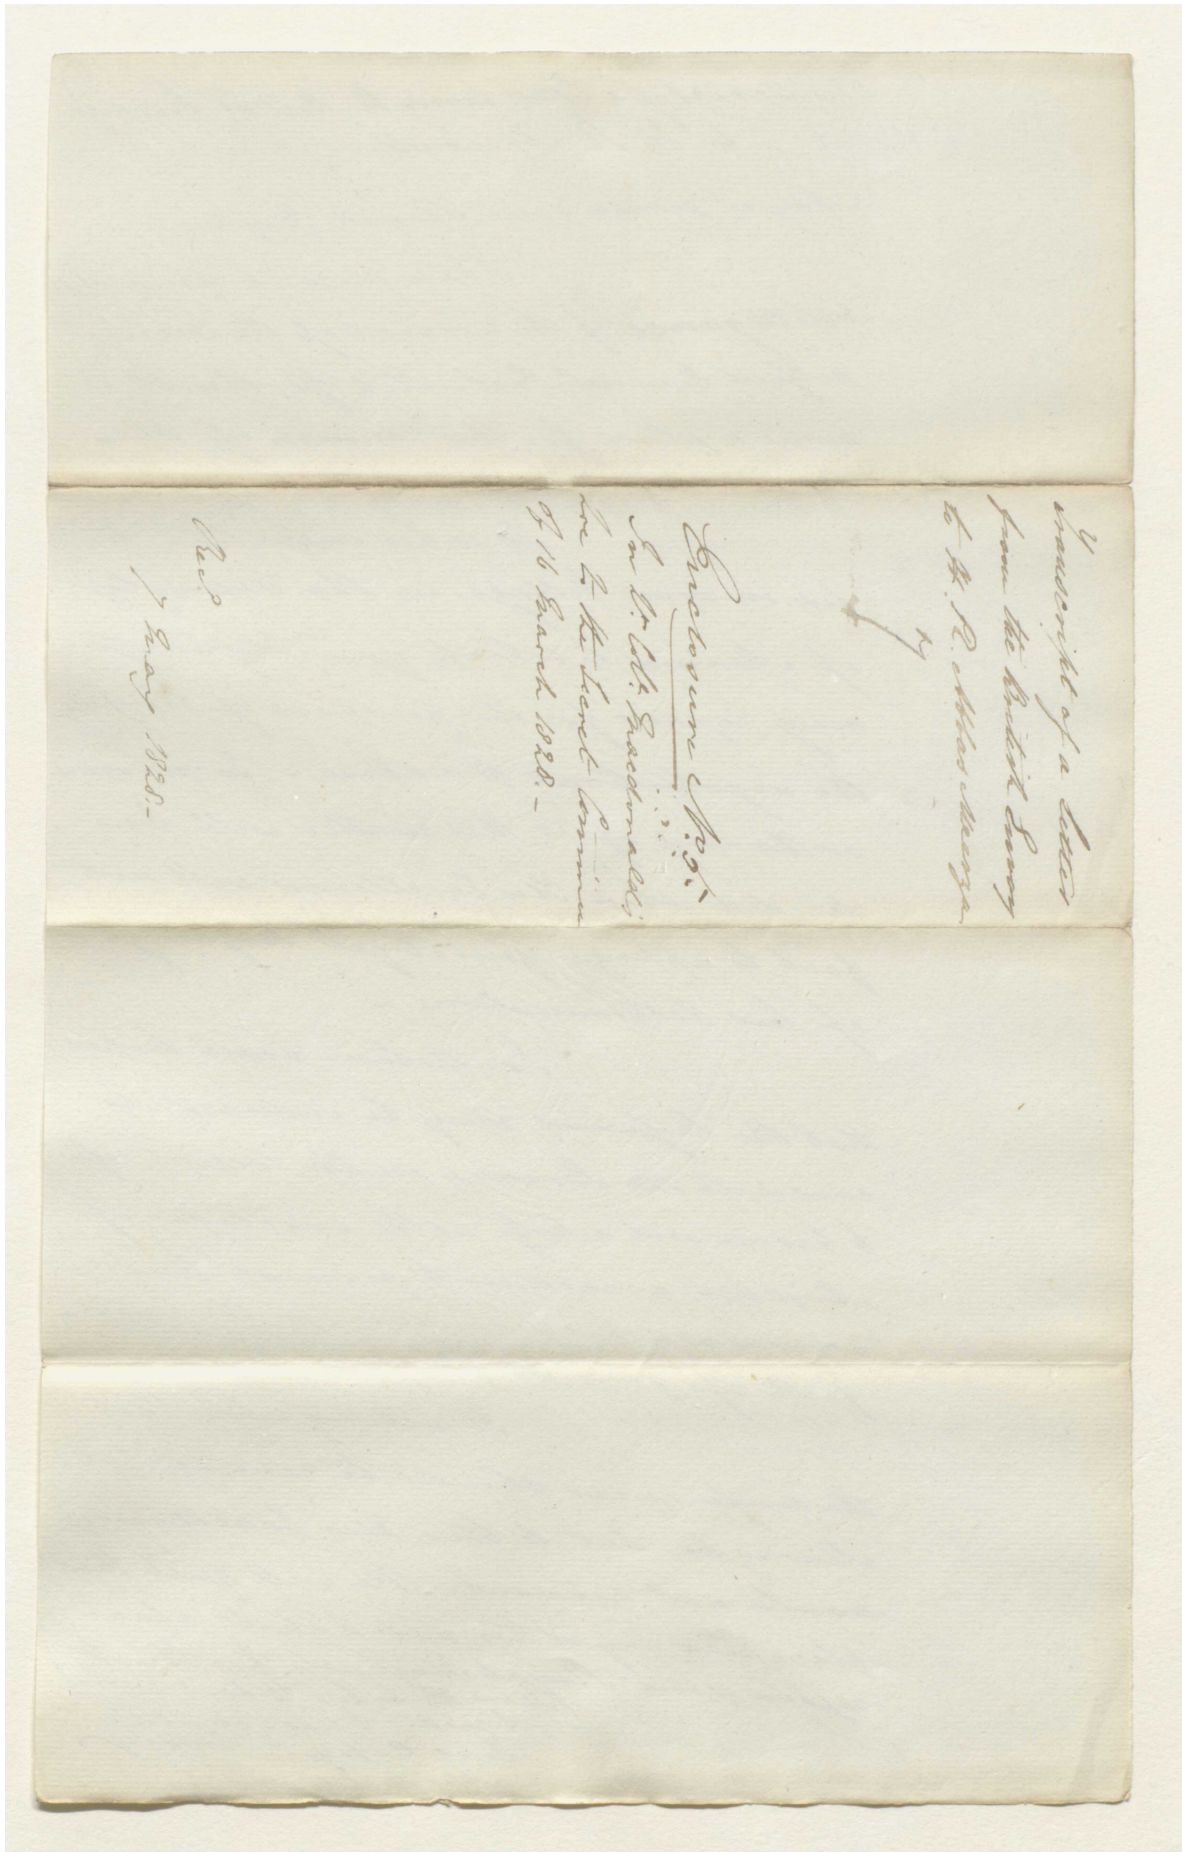 Transcript of a letter
from the British Envoy
to H. R. Abbas Meerza
Enclosure No. 5.
In Lt Coll. Macdonald's
to the Secret Committee
of 16 March 1828.-
Recd
7 May 1828.-